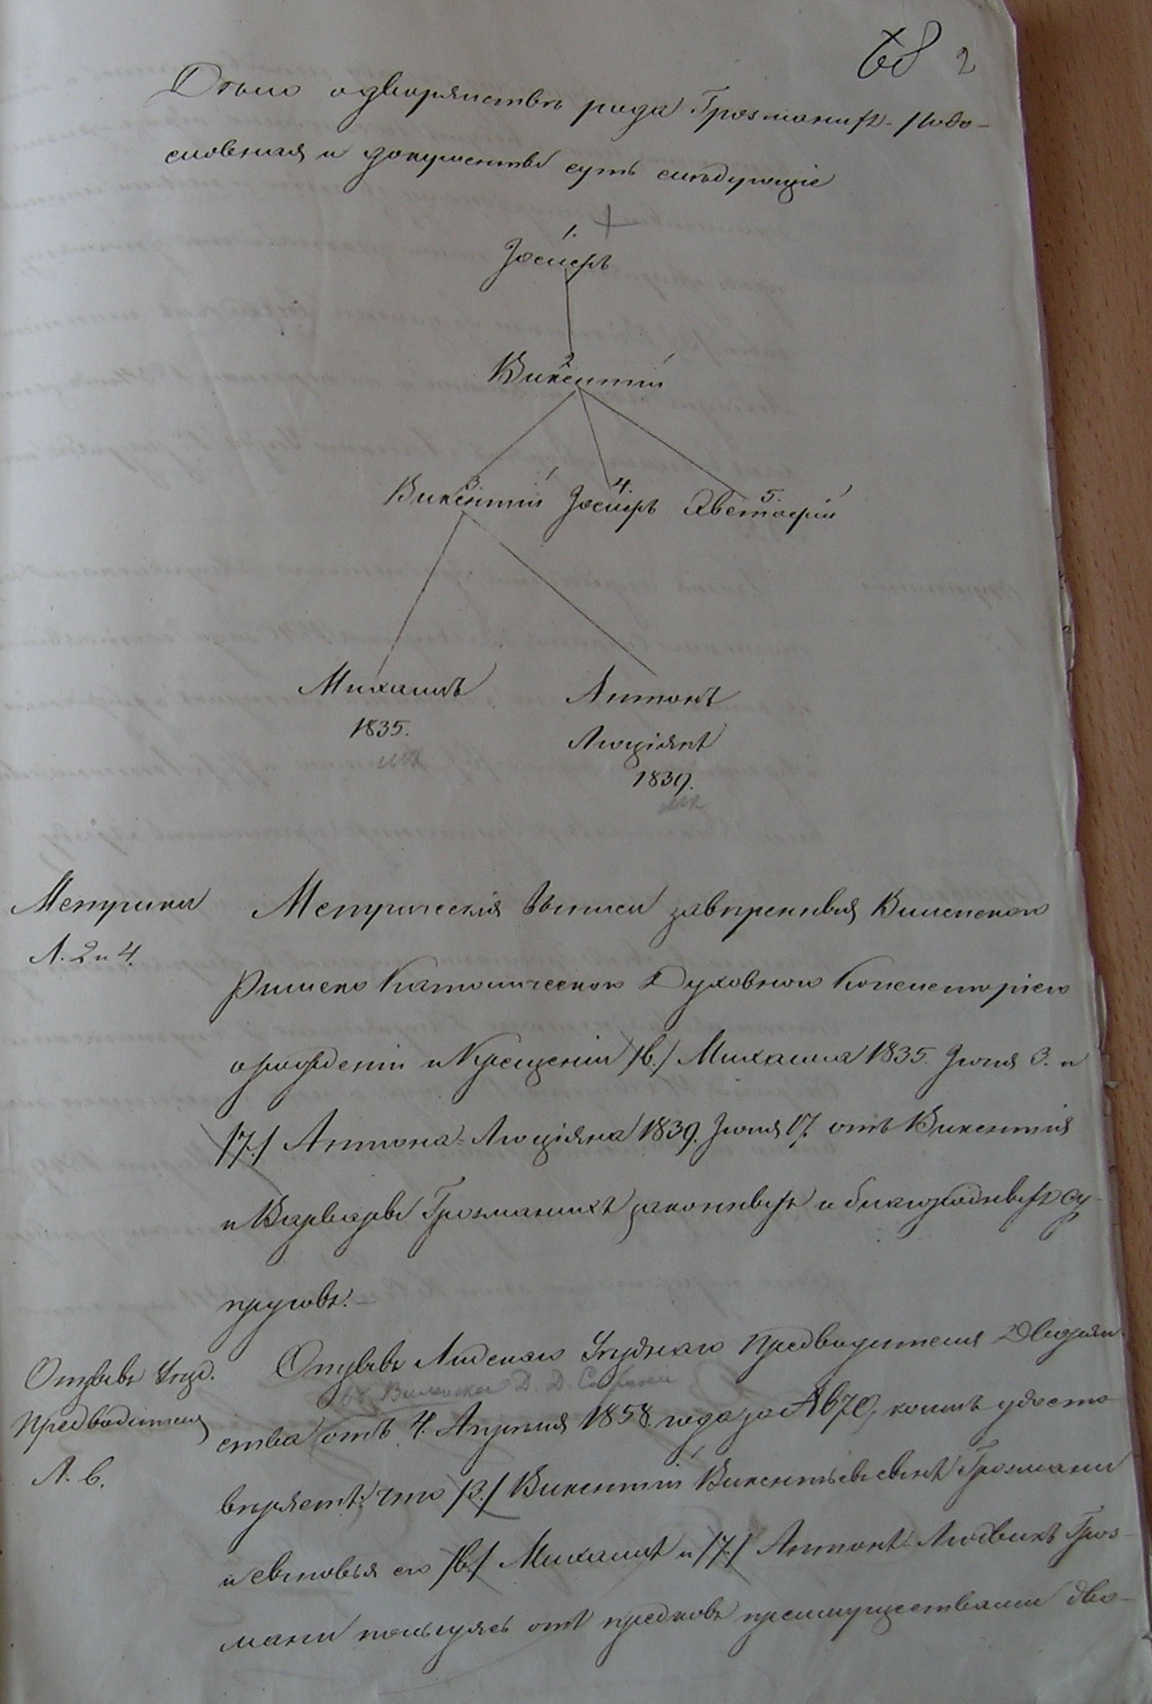 68 2
Дѣло о дворянствѣ рода Грозманихъ. Родо-
словная и документы суть слѣдующіе
1.
Іосифъ
2
Викентій
3 4. 5.
Викентій Іосифъ Евстафій
Михаилъ Антонъ
1835. Люціянъ
1839.
Метрики
Л. 2 и 4.
Метрическія выписи завѣренныя Виленскою
Римско Католическою Духовною Консисторіею
о рожденіи и крещеніи /6./ Михаила 1835. Іюня 3. и
/7./ Антона-Люціяна 1839. Іюня 17. отъ Викентія
и Варвары Грозманихъ законныхъ и благородныхъ су-
пруговъ.—
Отзывъ Уѣзд.
Предводителя
Л. 6.
Отзывъ Лидскаго Уѣзднаго Предводителя Дворян-
въ Виленское Д. Д. Собраніе
ства отъ 4. Апрѣля 1858 года за № 670, коимъ удосто-
вѣряетъ, что /3./ Викентій Викентьевъ сынъ Грозмани
и сыновья его /6./ Михаилъ и /7./ Антонъ Людвикъ Гроз-
мани пользуясь отъ предковъ преимуществами дво-